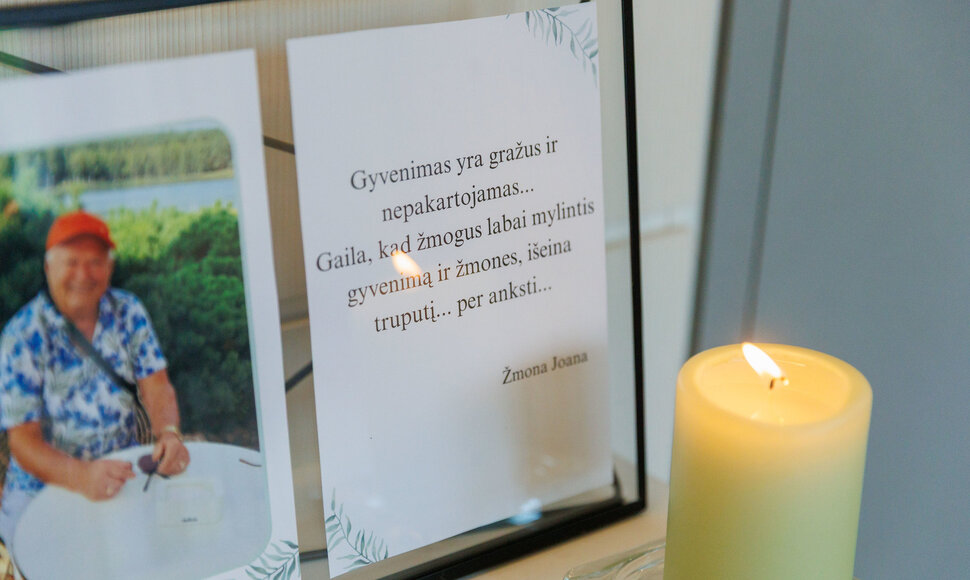 Gyvenimas yra gražus ir
nepakartojamas...
Gaila, kad žmogus labai mylintis
gyvenimą ir žmones, išeina
truputį... per anksti...
Žmona Joana